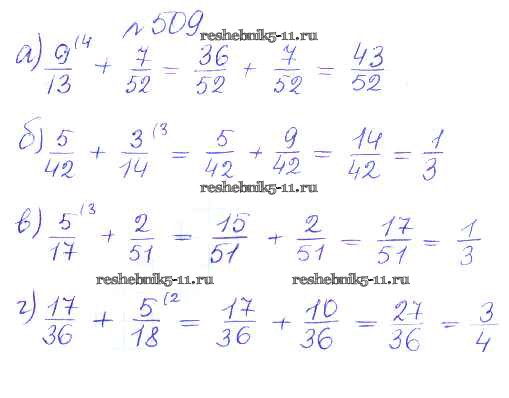 №509
reshebnik5-11.ru
а) 9/13 (4 + 7/52 = 36/52 + 7/52 = 43/52
б) 5/42 + 3/14 (3 = 5/42 + 9/42 = 14/42 = 1/3
reshebnik5-11.ru
в) 5/17 (3 + 2/51 = 15/51 + 2/51 = 17/51 = 1/3
reshebnik5-11.ru reshebnik5-11.ru
г) 17/36 + 5/18 (2 = 17/36 + 10/36 = 27/36 = 3/4